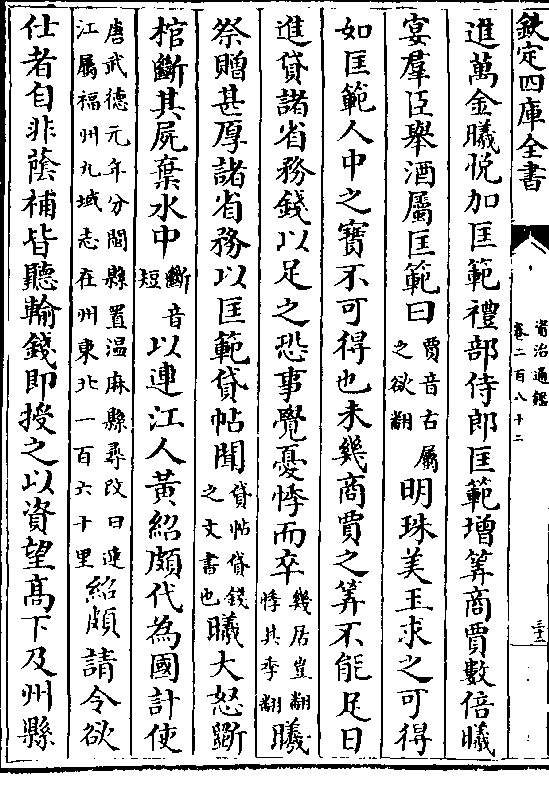 欽定四庫全書
資治通鑑
卷二百八十二
進萬金曦悦加匡範禮部侍郎匡範增筭商賈數倍曦
宴羣臣舉酒屬匡範曰賈音古屬之欲翻明珠美玉求之可得
如匡範人中之寳不可得也未幾商賈之筭不能足日
進貸諸省務錢以足之恐事覺憂悸而卒幾居豈翻悸其季翻曦
祭贈甚厚諸省務以匡範貸帖聞貸帖貸錢之文書也曦大怒斵
棺斷其屍棄水中斷音短以連江人黃紹頗代為國計使
唐武德元年分閩縣置温麻縣尋改曰連江屬福州九域志在州東北一百六十里紹頗請令欲
仕者自非蔭補皆聽輸錢即授之以資望髙下及州縣